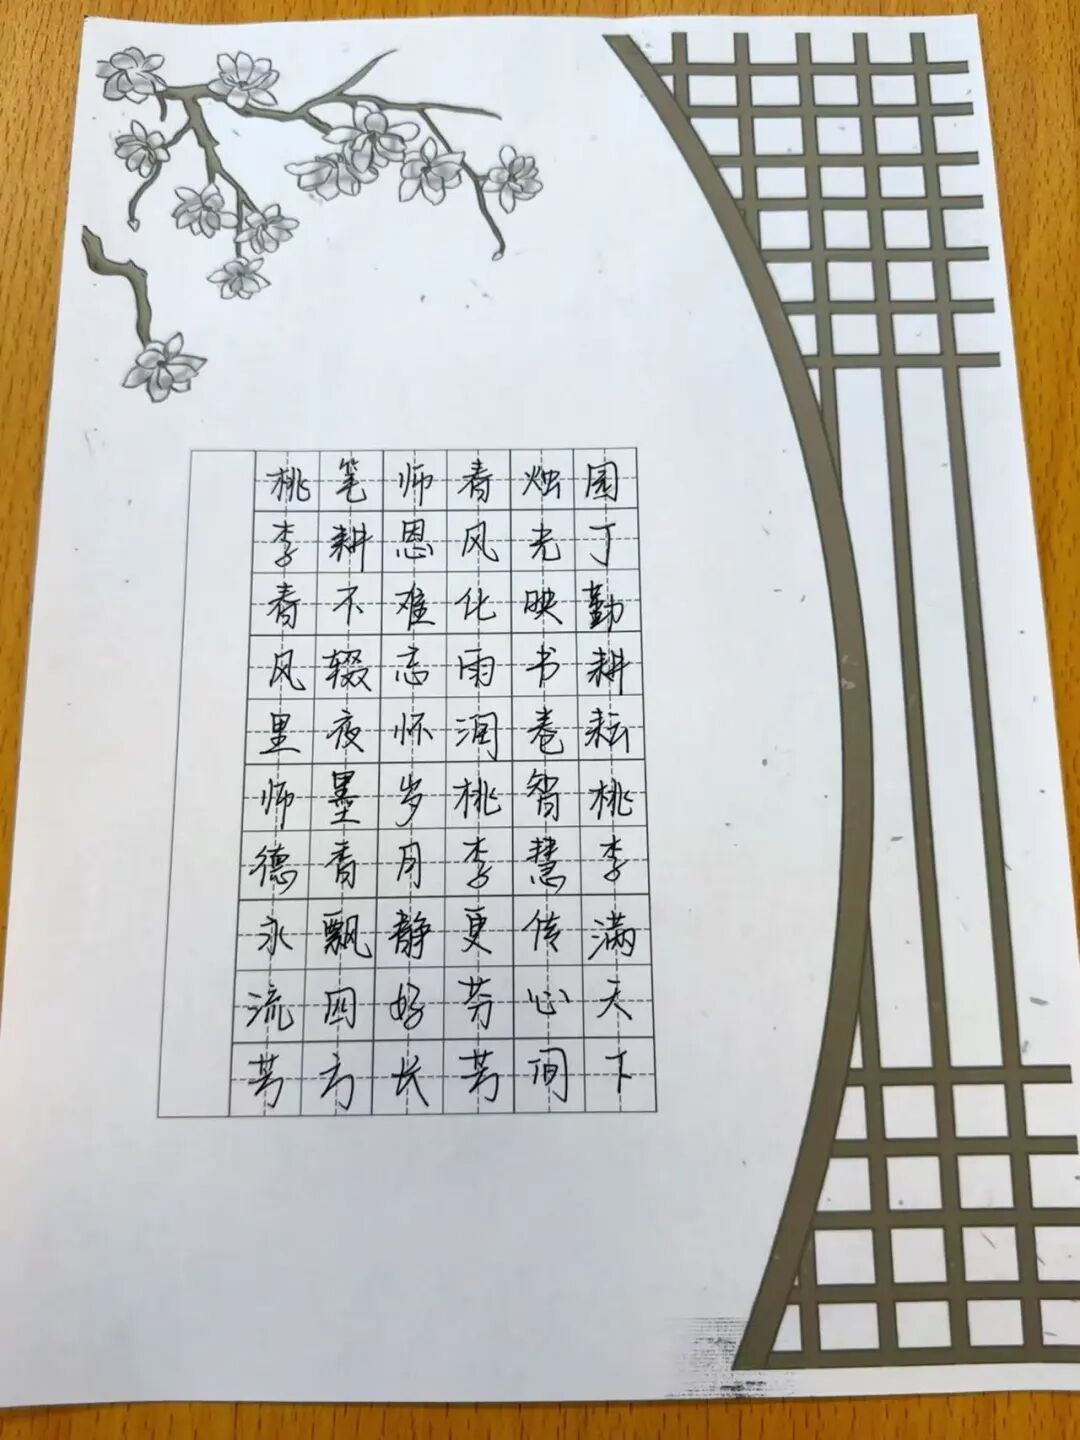 园丁勤耕耘桃李满天下
烛光映书卷智慧传心间
春风化雨润桃李更芬芳
师恩难忘怀岁月静好长
笔耕不辍夜墨香飘四方
桃李春风里师德永流芳